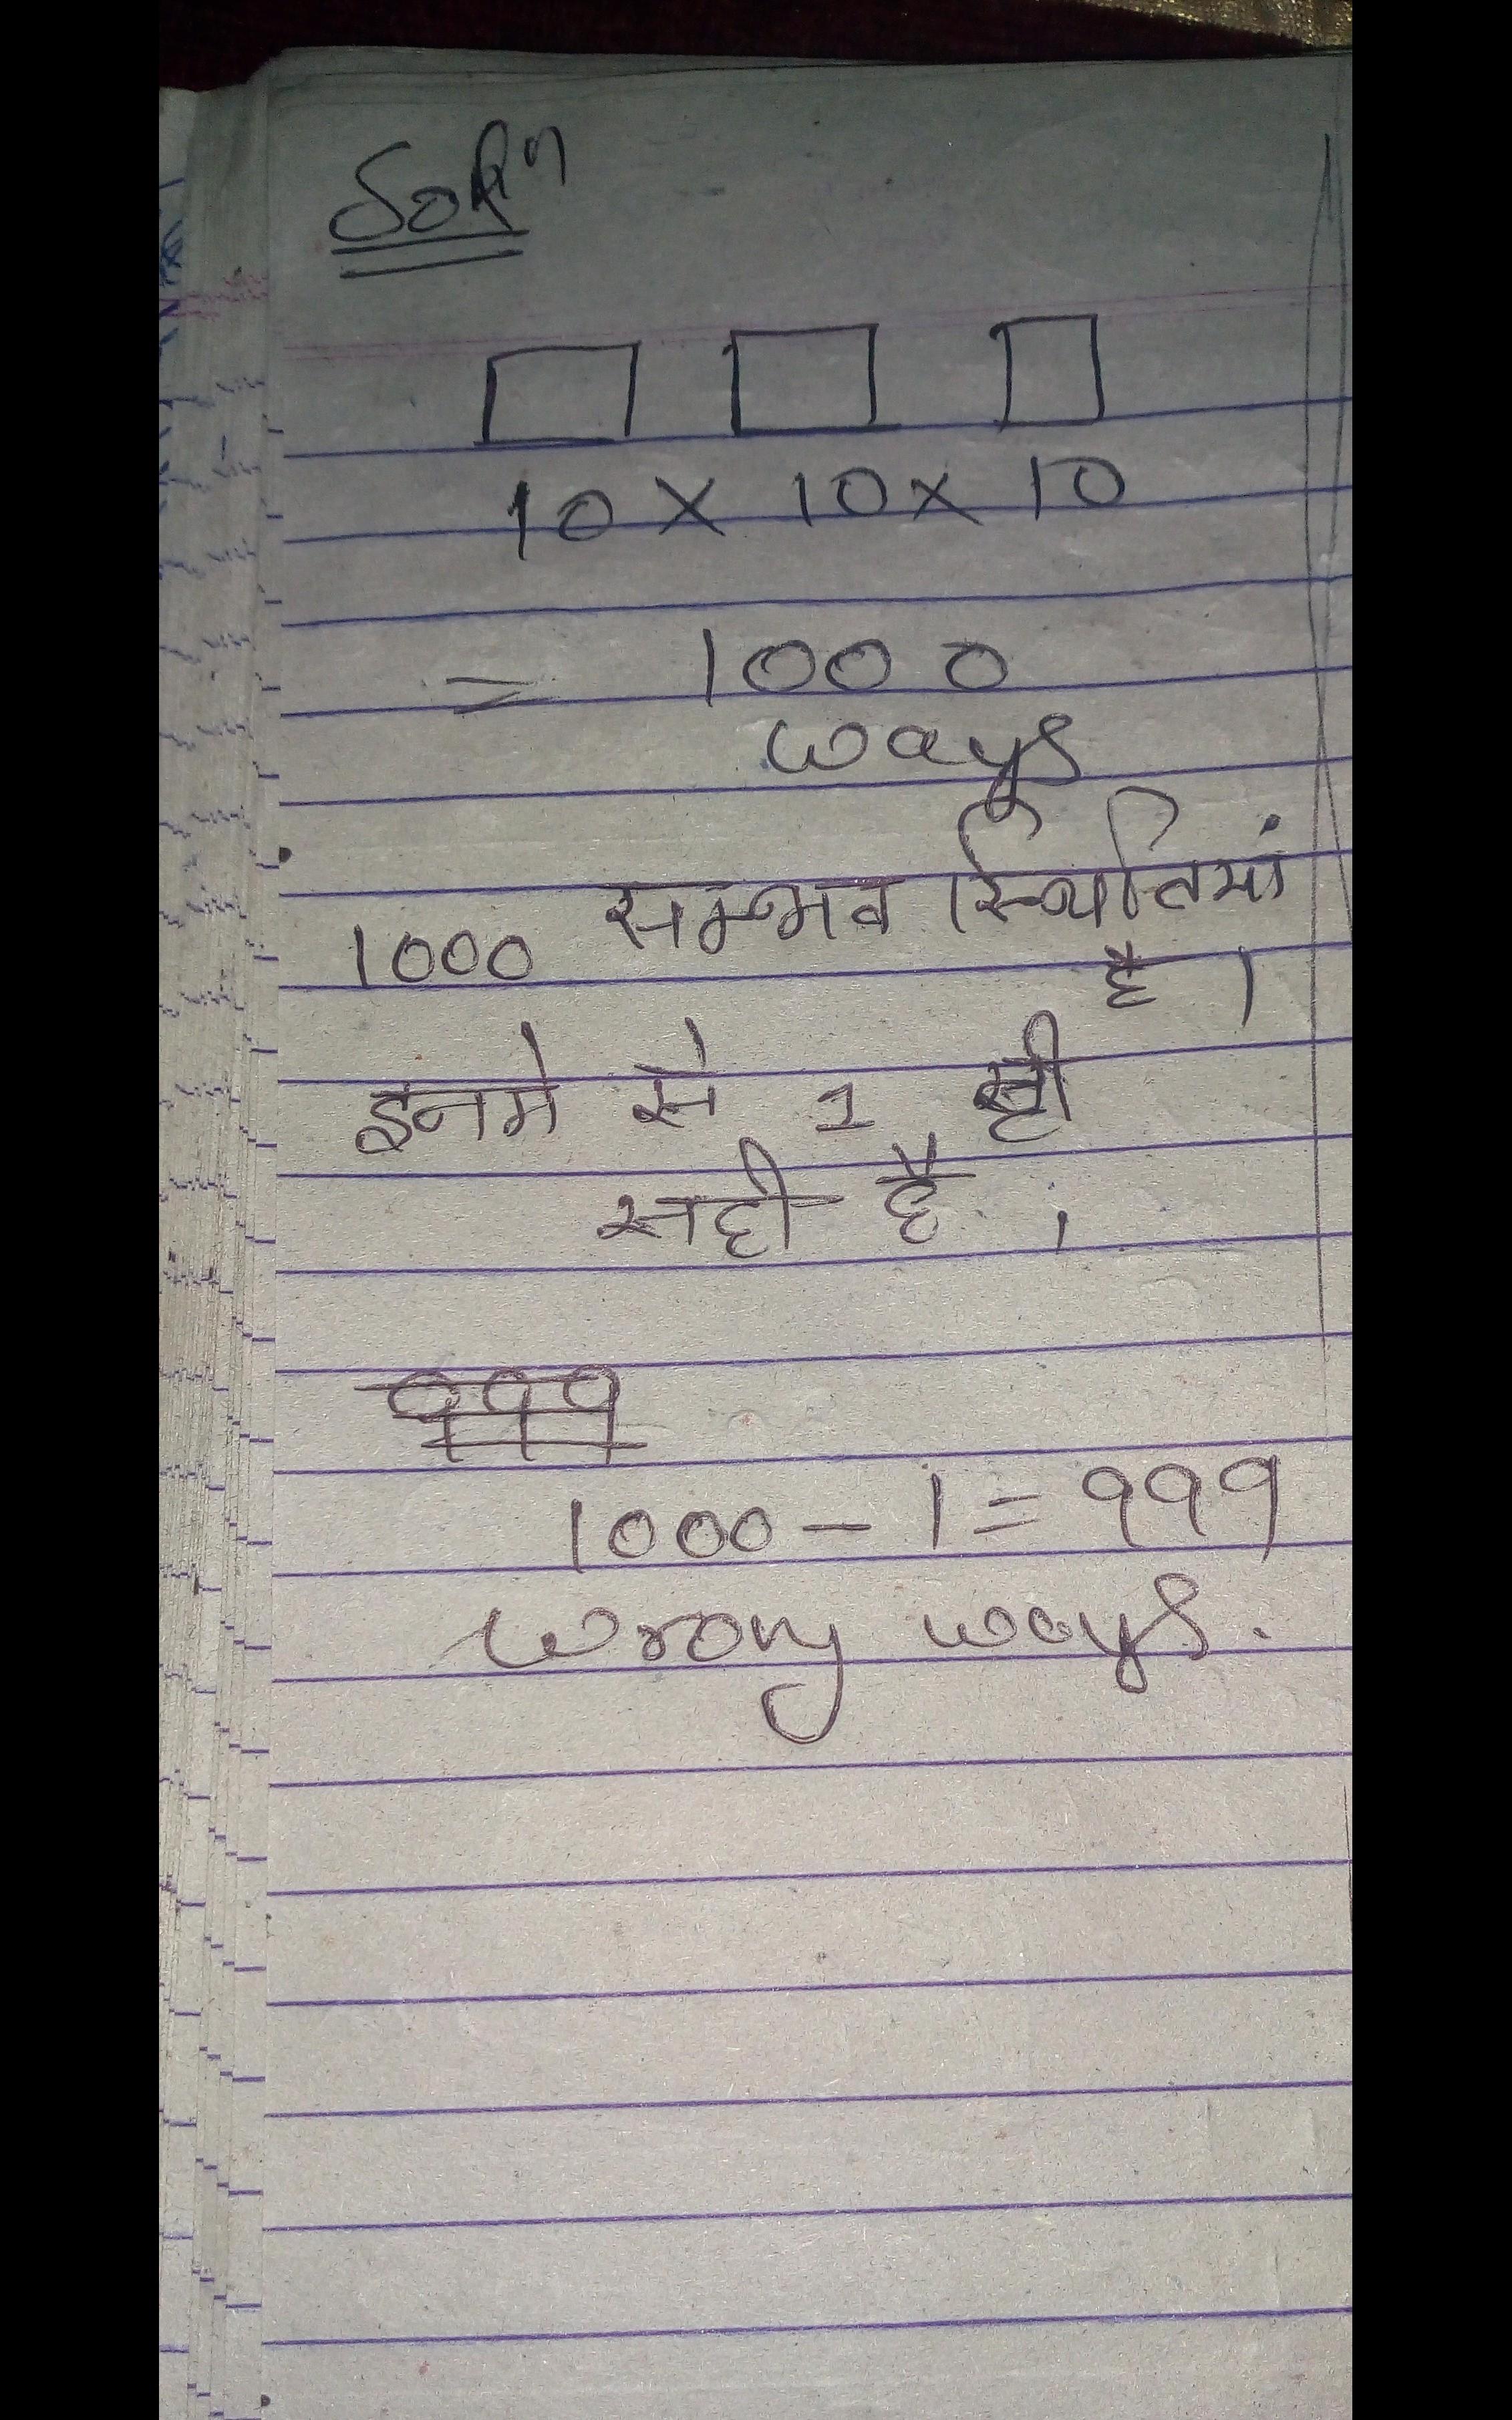 Solⁿ
10 × 10 × 10
= 1000
ways
1000 सम्भव स्थितियां
है ।
इनमे से 1 ही
सही है ।
999
1000 - 1 = 999
wrong ways.